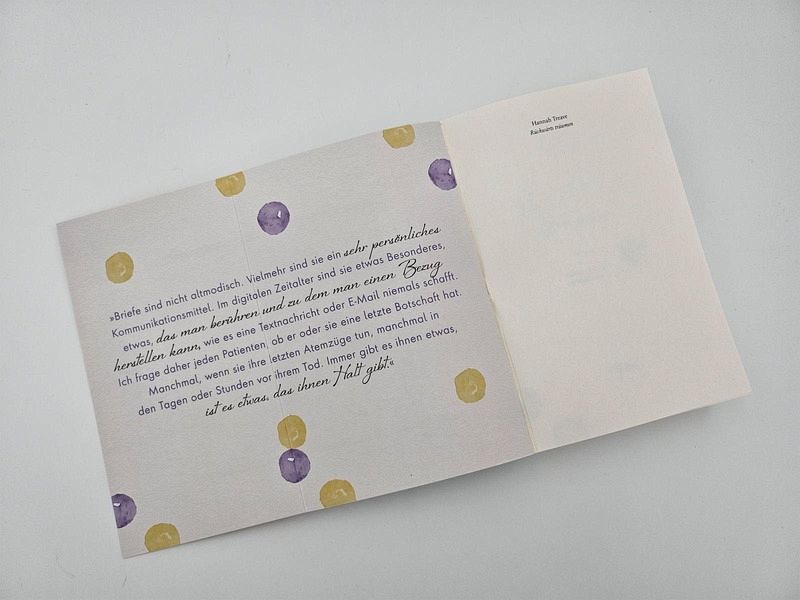 »Briefe sind nicht altmodisch. Vielmehr sind sie ein sehr persönliches
Kommunikationsmittel. Im digitalen Zeitalter sind sie etwas Besonderes,
etwas, das man berühren und zu dem man einen Bezug
herstellen kann, wie es eine Textnachricht oder E-Mail niemals schafft.
Ich frage daher jeden Patienten, ob er oder sie eine letzte Botschaft hat.
Manchmal, wenn sie ihre letzten Atemzüge tun, manchmal in
den Tagen oder Stunden vor ihrem Tod. Immer gibt es ihnen etwas,
ist es etwas, das ihnen Halt gibt.«
Hannah Treave
Rückwärts träumen